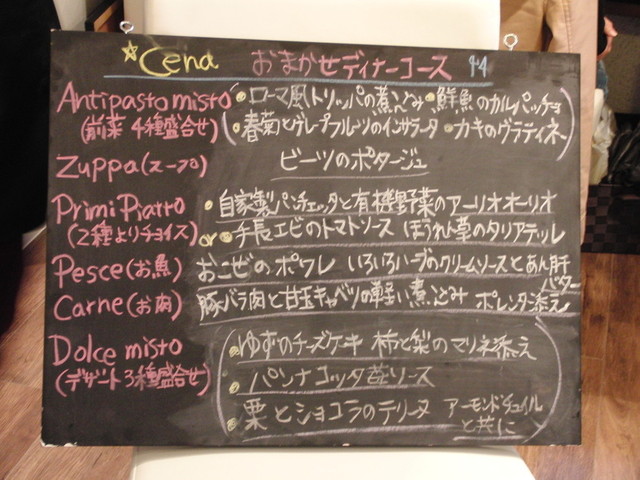 ☆Cena おまかせディナーコース
Antipasto misto ・ローマ風トリッパの煮込み ・鮮魚のカルパッチョ
(前菜 4種盛合せ) ・春菊とグレープフルーツのインサラータ ・カキのグラティネ
Zuppa(スープ) ビーツのポタージュ
Primi Piatto ・自家製パンチェッタと有機野菜のアーリオオーリオ
(2種よりチョイス) or ・手長エビのトマトソース ほうれん草のタリアテッレ
Pesce(お魚) おこぜのポワレ いろいろハーブのクリームソースとあん肝バター
Carne(お肉) 豚バラ肉と甘玉キャベツの軽い煮込み ポレンタ添え
Dolce misto ・ゆずのチーズケーキ 柿と梨のマリネ添え
(デザート3種盛合せ) ・パンナコッタ苺ソース
・栗とショコラのテリーヌ アーモンドチュイル
と共に